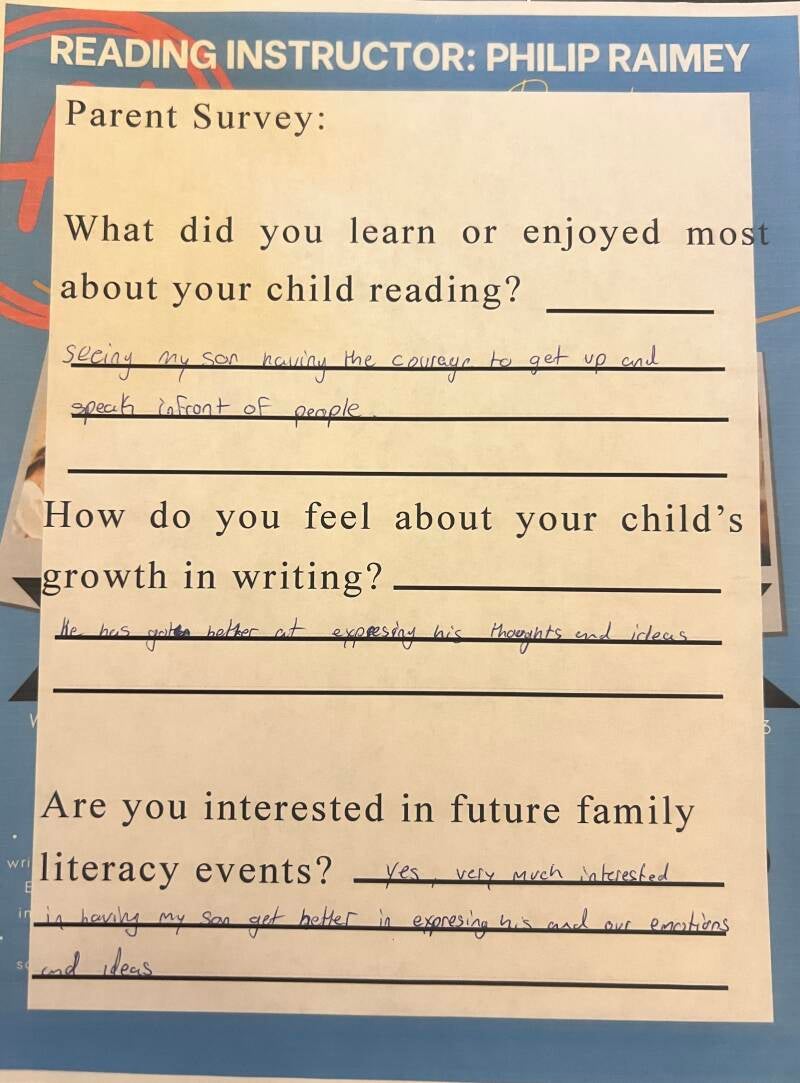 READING INSTRUCTOR: PHILIP RAIMEY
Parent Survey:
What did you learn or enjoyed most
about your child reading?
Seeing my son having the courage to get up and
speak infront of people.
How do you feel about your child's
growth in writing?
He has gotten better at expresing his thoughts and ideas
Are you interested in future family
literacy events? Yes, very much interested
in having my son get better in expresing his and our emotions
and ideas